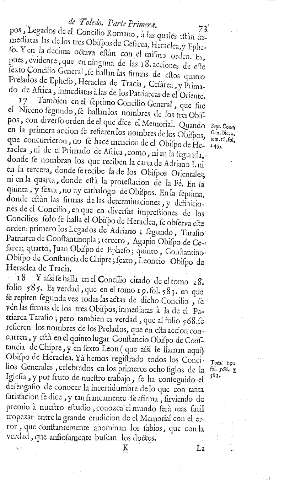 de Toledo. Parte Primera. 73
pos, Legados de el Concilio Romano, à las quales están in-
mediatas las de los tres Obispos de Cesarea, Heraclea, y Ephe-
so. Y en la decima octava están con el mismo orden. Es,
pues, evidente, que en ninguna de las 18. acciones de este
sexto Concilio General, se hallan las firmas de estos quatro
Prelados de Epheso, Heraclea de Tracia, Cesarea, y Prima-
do de Africa, inmediatas à las de los Patriarcas de el Oriente.
17 Tambien en el septimo Concilio General, que fué
el Niceno segundo, se hallan los nombres de los tres Obis-
pos, con diverso orden de el que dice el Memorial. Quando
en la primera accion se refieren los nombres de los Obispos,
que concurrieron, no se hace mencion de el Obispo de He-
raclea, ni de el Primado de Africa, como, ni en la segunda,
donde se nombran los que reciben la carta de Adriano I. ni
en la tercera, donde se recibe la de los Obispos Orientales,
ni en la quarta, donde está la protestacion de la Fé. En la
quinta, y sexta, no ay cathalogo de Obispos. En la septima,
donde están las firmas de las determinaciones, y definicio-
nes de el Concilio, en que en diversas impressiones de los
Concilios solo se halla el Obispo de Heraclea, se observa este
orden: primero los Legados de Adriano; segundo, Tarasio
Patriarca de Constantinopla; tercero, Agapio Obispo de Ce-
sarea; quarto, Juan Obispo de Epheso; quinto, Constantino
Obispo de Constancia de Chipre; sexto, Leoncio Obispo de
Heraclea de Tracia.
18 Y assi se halla en el Concilio citado de el tomo 18.
folio 585. Es verdad, que en el tomo 19. fol. 583. en que
se repiten segunda vez todas las actas de dicho Concilio, se
vén las firmas de los tres Obispos, inmediatas à la de el Pa-
triarca Tarasio; pero tambien es verdad, que al folio 568. se
refieren los nombres de los Prelados, que en esta accion con-
currieron, y está en el quinto lugar Constancio Obispo de Cons-
tancia de Chipre, y en sexto Leon (que assi le llaman aqui)
Obispo de Heraclea. Yá hemos registrado todos los Conci-
lios Generales, celebrados en los primeros ocho siglos de la
Iglesia, y por fruto de nuestro trabajo, se ha conseguido el
desengaño de conocer la incertidumbre de lo que con tanta
satisfacion se dice, y tan firmemente se afirma, sirviendo de
premio à nuestro estudio, conozca el mundo será mas facil
tropezar entre la grande erudicion de el Memorial con el er-
ror, que constantemente abominan los sabios, que con la
verdad, que ansiosamente buscan los doctos.
K La